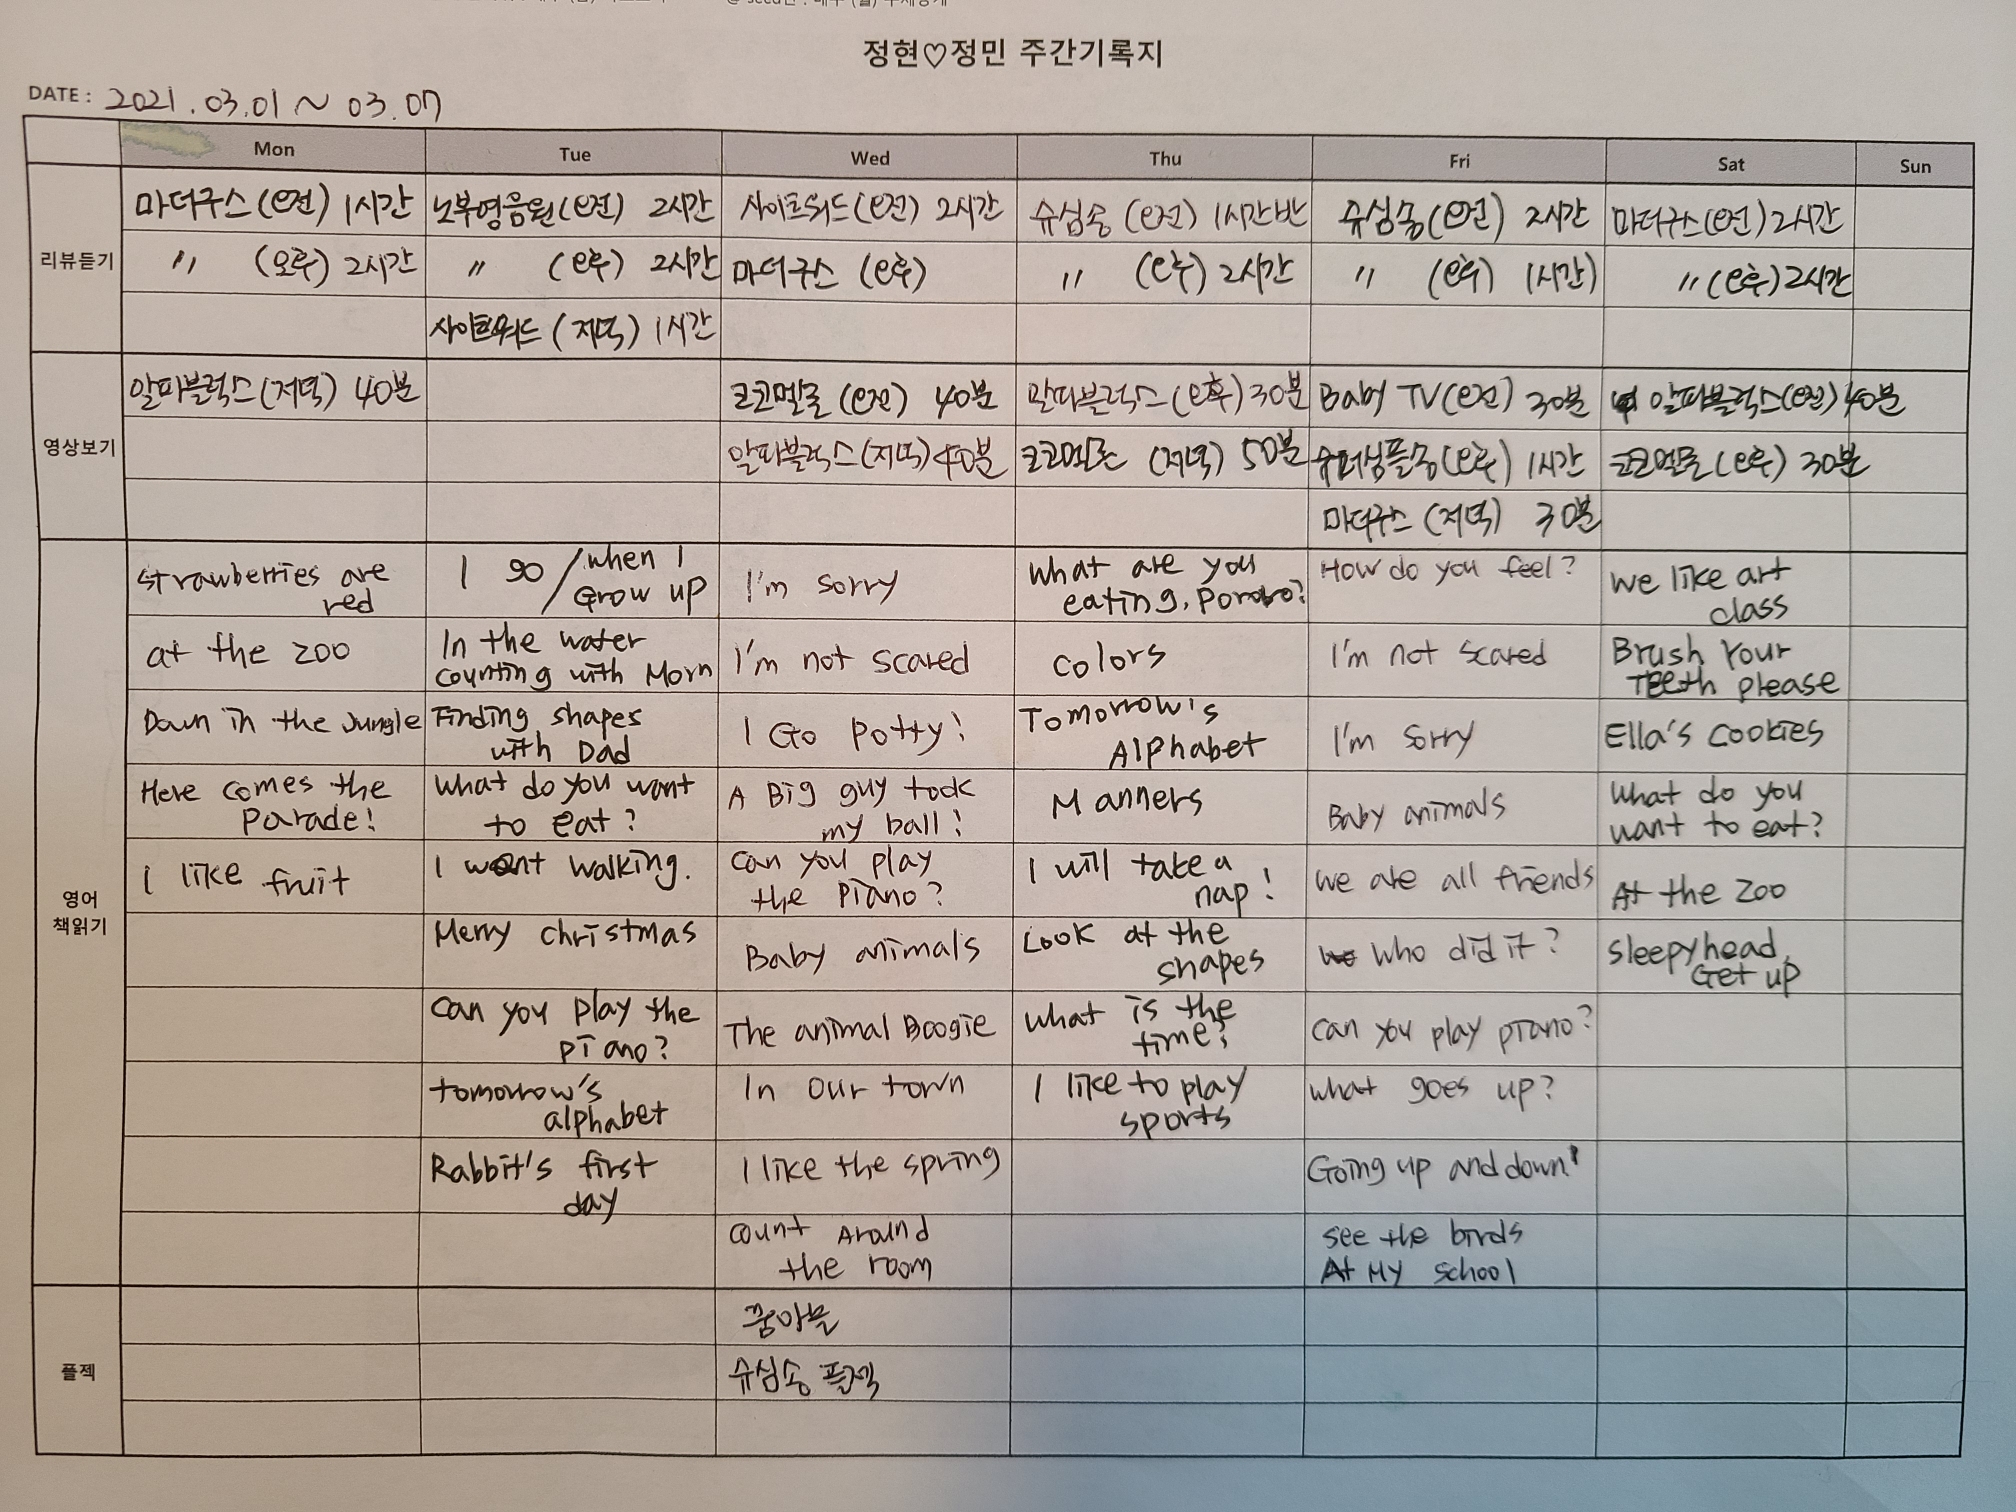 정현♡정민 주간기록지
DATE : 2021.03.01 ~ 03.07
Mon Tue Wed Thu Fri Sat Sun
리뷰듣기
마더구스(오전) 1시간 노부영음원(오전) 2시간 사이트워드(오전) 2시간 슈심송 (오전) 1시간반 슈심송(오전) 2시간 마더구스(오전) 2시간
〃 (오후) 2시간 〃 (오후) 2시간 마더구스 (오후) 〃 (오후) 2시간 〃 (오후) 1시간) 〃 (오후) 2시간
사이트워드 (저녁) 1시간
영상보기
알파블럭스(저녁) 40분 코코멜론 (오전) 40분 알파블럭스(오후) 30분 Baby TV(오전) 30분 알파블럭스(오전) 40분
알파블럭스(저녁) 40분 코코멜론 (저녁) 50분 슈퍼심플송(오후) 1시간 코코멜론(오후) 30분
마더구스 (저녁) 30분
영어
책읽기
strawberries are
red
I go / when I
Grow up
I'm sorry
What are you
eating, Pororo?
How do you feel?
We like art
class
at the zoo
In the water
counting with Mom
I'm not scared
Colors
I'm not scared
Brush Your
TEEth please
Down in the Jungle
Finding shapes
with Dad
I Go Potty!
Tomorrow's
Alphabet
I'm sorry
Ella's cookies
Here comes the
Parade!
What do you want
to eat?
A Big guy took
my ball!
Manners
Baby animals
What do you
want to eat?
I like fruit
I went walking.
Can you play
the piano?
I will take a
nap!
We are all friends
At the zoo
Merry christmas
Baby animals
Look at the
shapes
Who did it?
sleepyhead,
Get up
Can you play the
piano?
The animal Boogie
What is the
time?
Can you play piano?
tomorrow's
alphabet
In our town
I like to play
sports
What goes up?
Rabbit's first
day
I like the spring
Going up and down
count Around
the room
see the birds
At My school
플젝
품앗블
슈심송 플젝